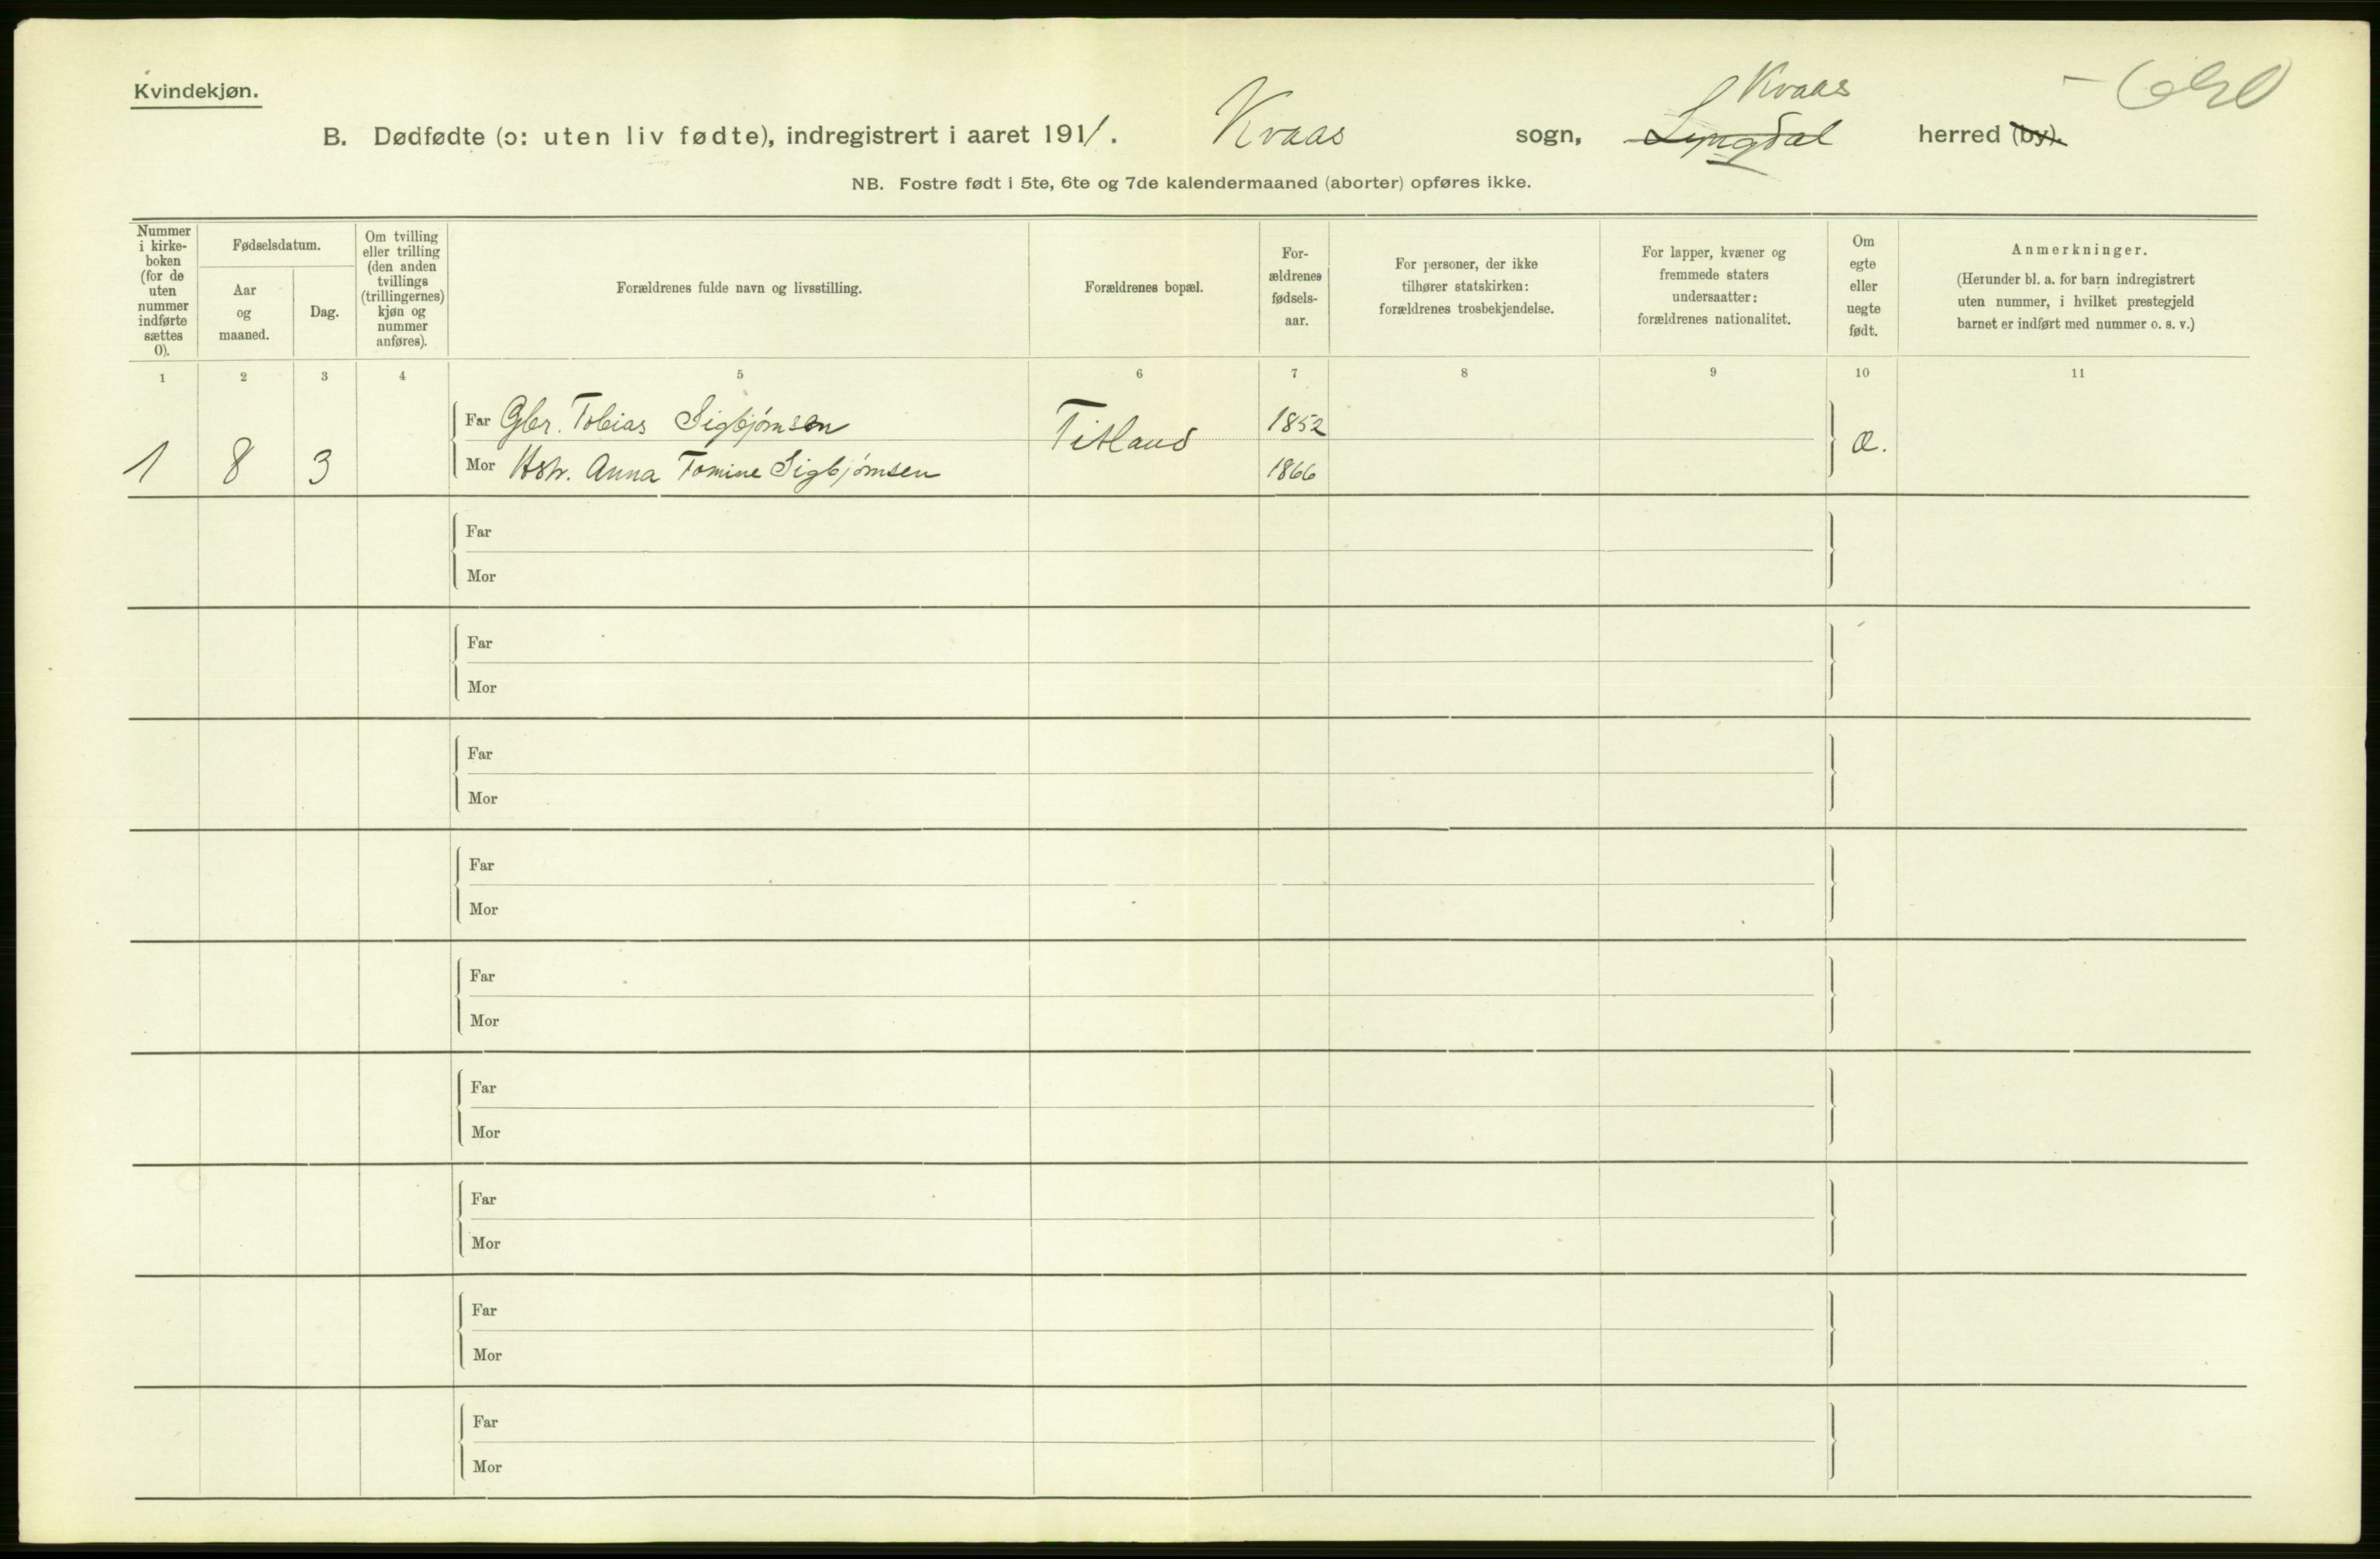 Kvindekjøn.
B. Dødfødte (ɔ: uten liv fødte), indregistrert i aaret 1911. Kvaas sogn, Lyngdal Kvaas herred (by).
NB. Fostre født i 5te, 6te og 7de kalendermaaned (aborter) opføres ikke.
Nummer i kirke-boken (for de uten nummer indførte sættes 0).
Fødselsdatum.
Aar og maaned.
Dag.
Om tvilling eller trilling (den anden tvillings (trillingernes) kjøn og nummer anføres).
Forældrenes fulde navn og livsstilling.
Forældrenes bopæl.
For-ældrenes fødsels-aar.
For personer, der ikke tilhører statskirken: forældrenes trosbekjendelse.
For lapper, kvæner og fremmede staters undersaatter: forældrenes nationalitet.
Om egte eller uegte født.
Anmerkninger.
(Herunder bl. a. for barn indregistrert uten nummer, i hvilket prestegjeld barnet er indført med nummer o. s. v.)
1 2 3 4 5 6 7 8 9 10 11
Far Gbr. Tobias Sigbjørnsen Titland 1852
1 8 3 Mor Hstr. Anna Tomine Sigbjørnsen 1866 æ.
Far
Mor
Far
Mor
Far
Mor
Far
Mor
Far
Mor
Far
Mor
Far
Mor
Far
Mor
Far
Mor